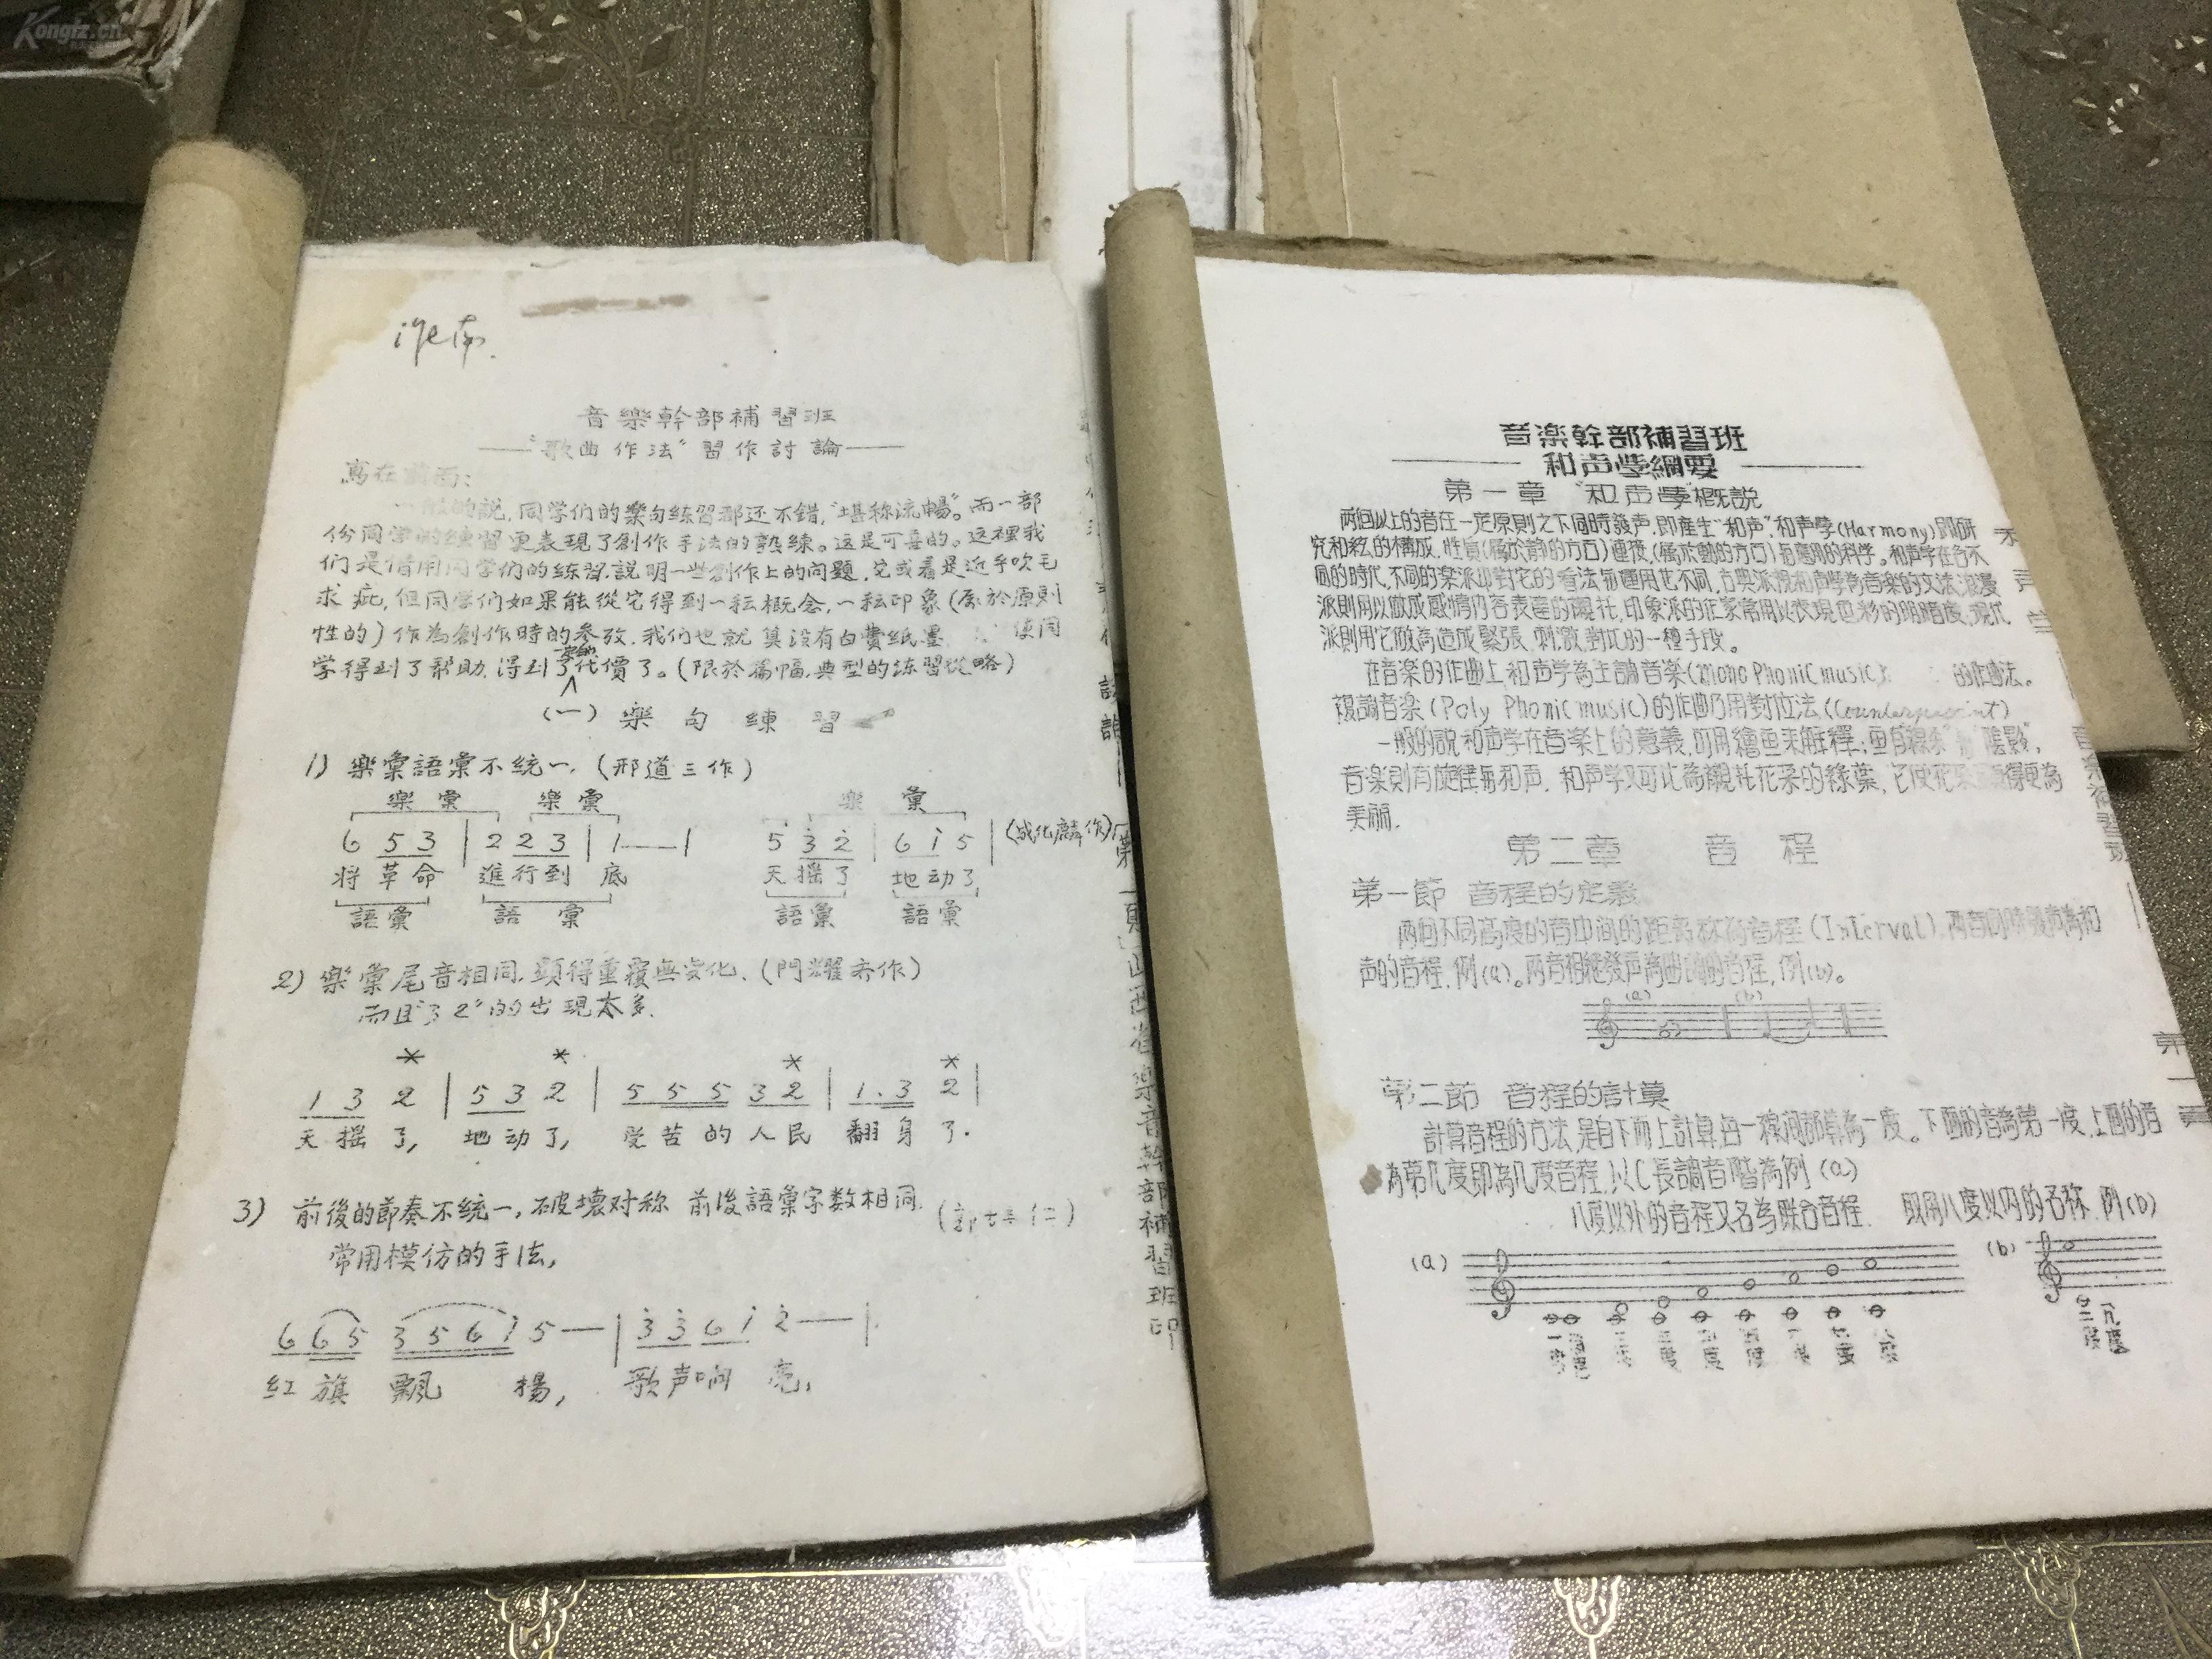 Kongfz.cn
音樂幹部補習班
——"歌曲作法"習作討論——
寫在前面:
一般的説,同学们的樂句练習都还不錯,"堪称流暢"。而一部
份同学的練習更表現了創作手法的熟練。这是可喜的。这裡我
们是借用同学们的练習,説明一些創作上的问題,它或看是近乎吹毛
求疵,但同学们如果能從它得到一種概念,一種印象(原於原則
性的)作為創作時的参攷,我们也就算没有白費纸墨 使同
学得到了帮助,得到了代價了。(限於篇幅,典型的练習從略)
(一)樂句練習
1) 樂彙語彙不统一,(邢道三作)
樂彙 樂彙 樂彙
6 5 3 | 2 2 3 | 1——| 5 3 2 | 6 1 5 | (成化麟作)
将革命 進行到底 天摇了 地动了
語彙 語彙 語彙 語彙
2) 樂彙尾音相同,顕得重覆無变化、(門耀亦作)
而且"3 2"的出現太多.
* * * *
1 3 2 | 5 3 2 | 5 5 5 3 2 | 1. 3 2 |
天摇了, 地动了, 受苦的人民 翻身了.
3) 前後的節奏不统一,破壞对称 前後語彙字数相同.
常用模仿的手法,
6 6 5 3 5 6 1 5—|3 3 6 1 2—|
红旗飄揚, 歌声响亮,
山西省樂音幹部補習班印
音楽幹部補習班
和声学綱要
第一章 "和声學"概説
两個以上的音在一定原則之下同時發声,即產生"和声",和声學(Harmony)即研
究和絃的構成,性質(屬於静的方面)連接,(屬於動的方面)与應用的科学。和声学在各不
同的時代,不同的楽派中對它的看法与運用也不同,古典派視和声學為音楽的文法,浪漫
派則用以做成感情内容表達的襯托,印象派的作家常用以表現色彩的明暗度,現代
派則用它做為造成緊張,刺激,對比的一種手段。
在音楽的作曲上和声学為主調音楽(mono Phonic music) 的作曲法。
複調音楽(Poly Phonic music)的作曲乃用對位法(Counterpoint)
一般的説和声学在音楽上的意義,可用繪画来解釋;画有線条 陰影",
音楽則有旋律与和声. 和声学又可比為襯托花朵的綠葉,它使花朵 得更為
美丽.
第二章 音程
第一節 音程的定義
两個不同高度的音中间的距离称為音程(Interval),两音同時發声為和
声的音程,例(a)。两音相继發声為曲调的音程,例(b)。
(a) (b)
第二節 音程的計算
計算音程的方法,是自下而上計算,每一線间都算為一度。下面的音為第一度,上面的音
為第几度即為几度音程,以C長調音階為例(a)
八度以外的音程又名為联合音程. 取用八度以内的名称,例(b)
(a) (b)